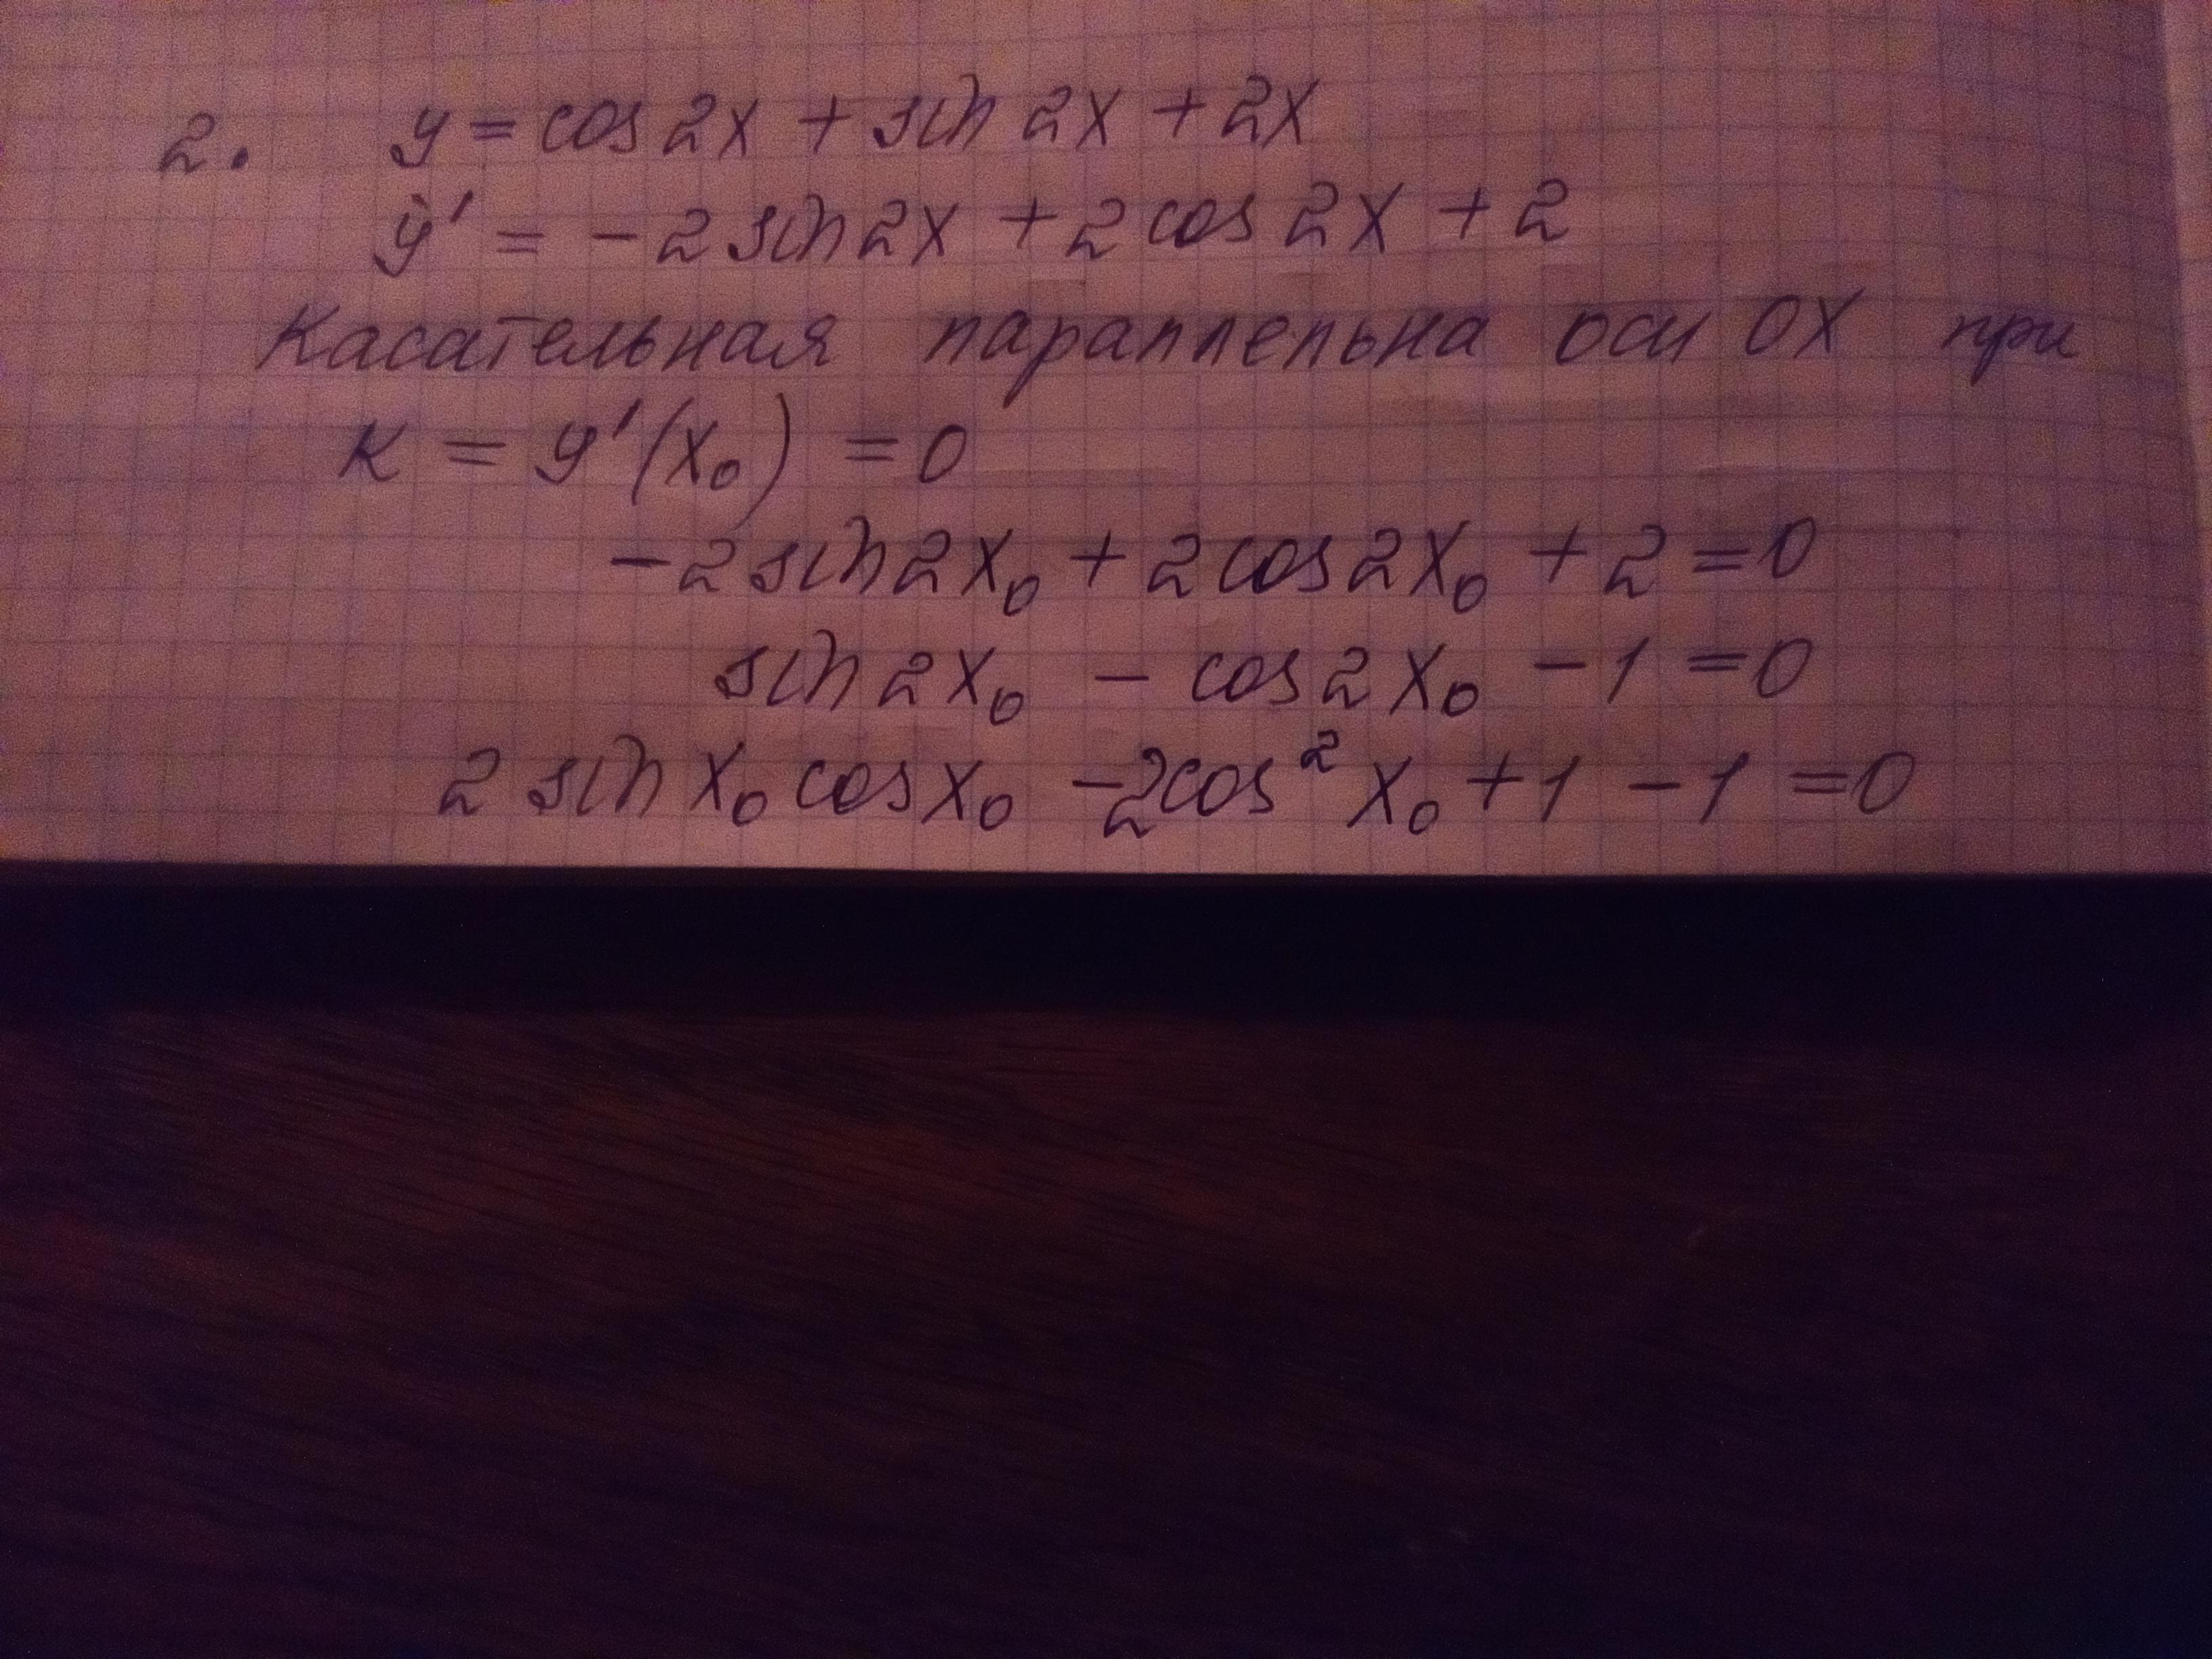 2. y = cos 2x + sin 2x + 2x
y' = -2 sin 2x + 2 cos 2x + 2
Касательная параллельна оси OX при
K = y'(x₀) = 0
-2 sin 2x₀ + 2 cos 2x₀ + 2 = 0
sin 2x₀ - cos 2x₀ - 1 = 0
2 sin x₀ cos x₀ - 2cos² x₀ + 1 - 1 = 0